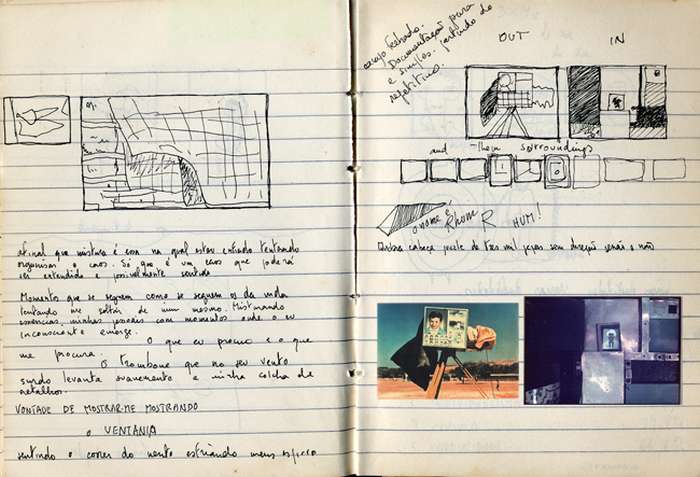 Afinal que mistura é essa na qual estou entrado tentando
organizar o caos. Só que é um caos que poderá
ser entendido e possivelmente sentido
Momentos que se seguem como se seguem os da vida
tentando me soltar de um mesmo. Misturando
essencias, minhas pessoais com momentos onde o eu
inconsciente emerge.
O que eu procuro e o que
me procura.
O trombone que no seu vento
surdo levanta suavemente a minha colcha de
retalhos.
VONTADE DE MOSTRAR-ME MOSTRANDO
O VENTANIA
sentindo o correr do vento esfriando meus
fechado.
Documentação para
e simples. partindo do
repetitivo.
OUT IN
and them sorroundings
o nome é Rhome R HUM!
Quebra cabeça de tres mil peças sem direção senão o não